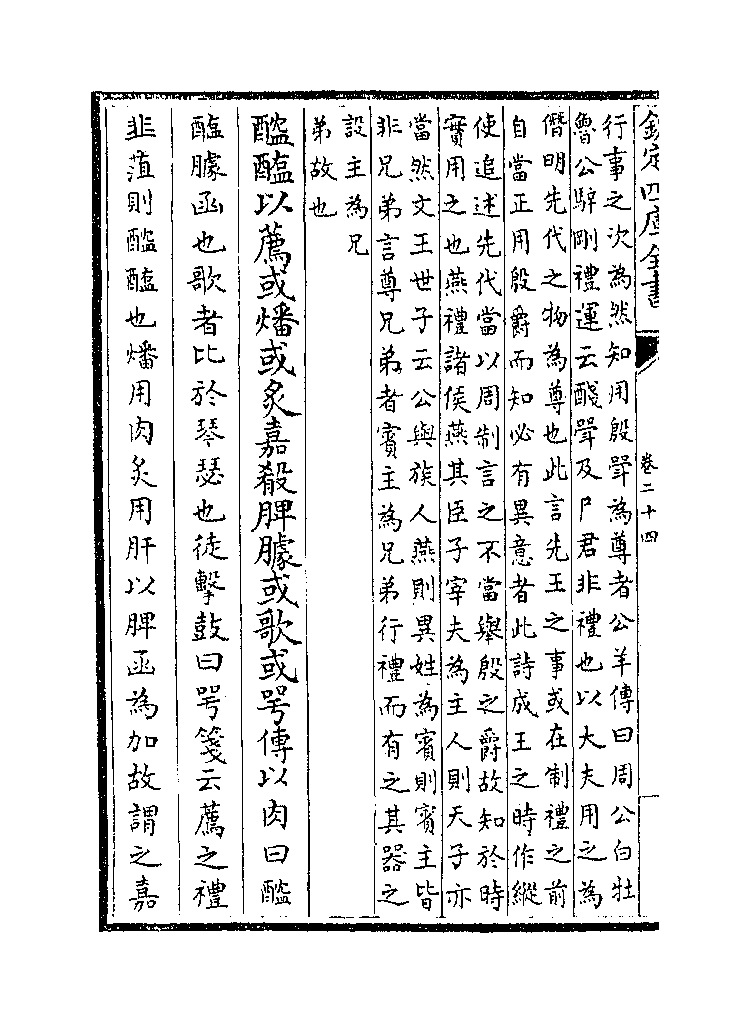 欽定四庫全書 卷二十四
行事之次為然知用殷斝為尊者公羊傳曰周公白牡
魯公騂剛禮運云醆斝及尸君非禮也以大夫用之為
僭明先代之物為尊也此言先王之事或在制禮之前
自當正用殷爵而知必有異意者此詩成王之時作縱
使追述先代當以周制言之不當舉殷之爵故知於時
實用之也燕禮諸侯燕其臣子宰夫為主人則天子亦
當然文王世子云公與族人燕則異姓為賓則賓主皆
非兄弟言尊兄弟者賓主為兄弟行禮而有之其器之
設主為兄
弟故也
醓醢以薦或燔或炙嘉殽脾臄或歌或咢傳以肉曰醓
醢臄函也歌者比於琴瑟也徒擊鼓曰咢箋云薦之禮
韭菹則醓醢也燔用肉炙用肝以脾函為加故謂之嘉